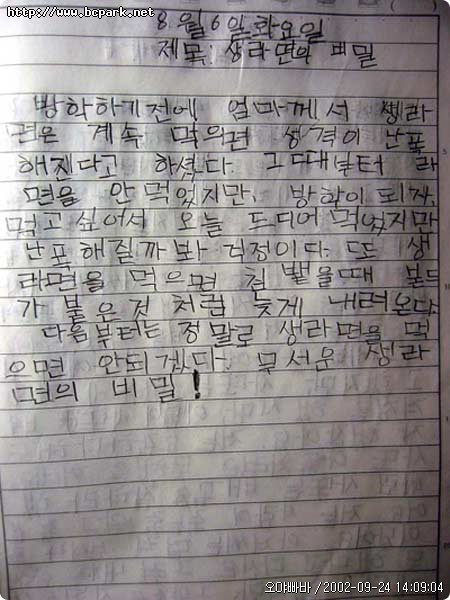 http://www.bcpark.net
8월 6일 화요일
제목: 생라면의 비밀
방학하기전에 엄마께서 생라
면은 계속 먹으면 성격이 난폭
해진다고 하셨다. 그때부터 라
면을 안 먹었지만, 방학이 되자,
먹고 싶어서 오늘 드디어 먹었지만
난폭해질까봐 걱정이다. 또 생
라면을 먹으면 침 뱉을때
가 붙은것 처럼 늦게 내려온다.
다음부터는 정말로 생라면을 먹
으면 안되겠다. 무서운 생라
면의 비밀!
오아빠바 / 2002-09-24 14:09:04